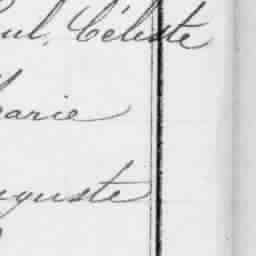 Paul, Céleste
Marie
Auguste